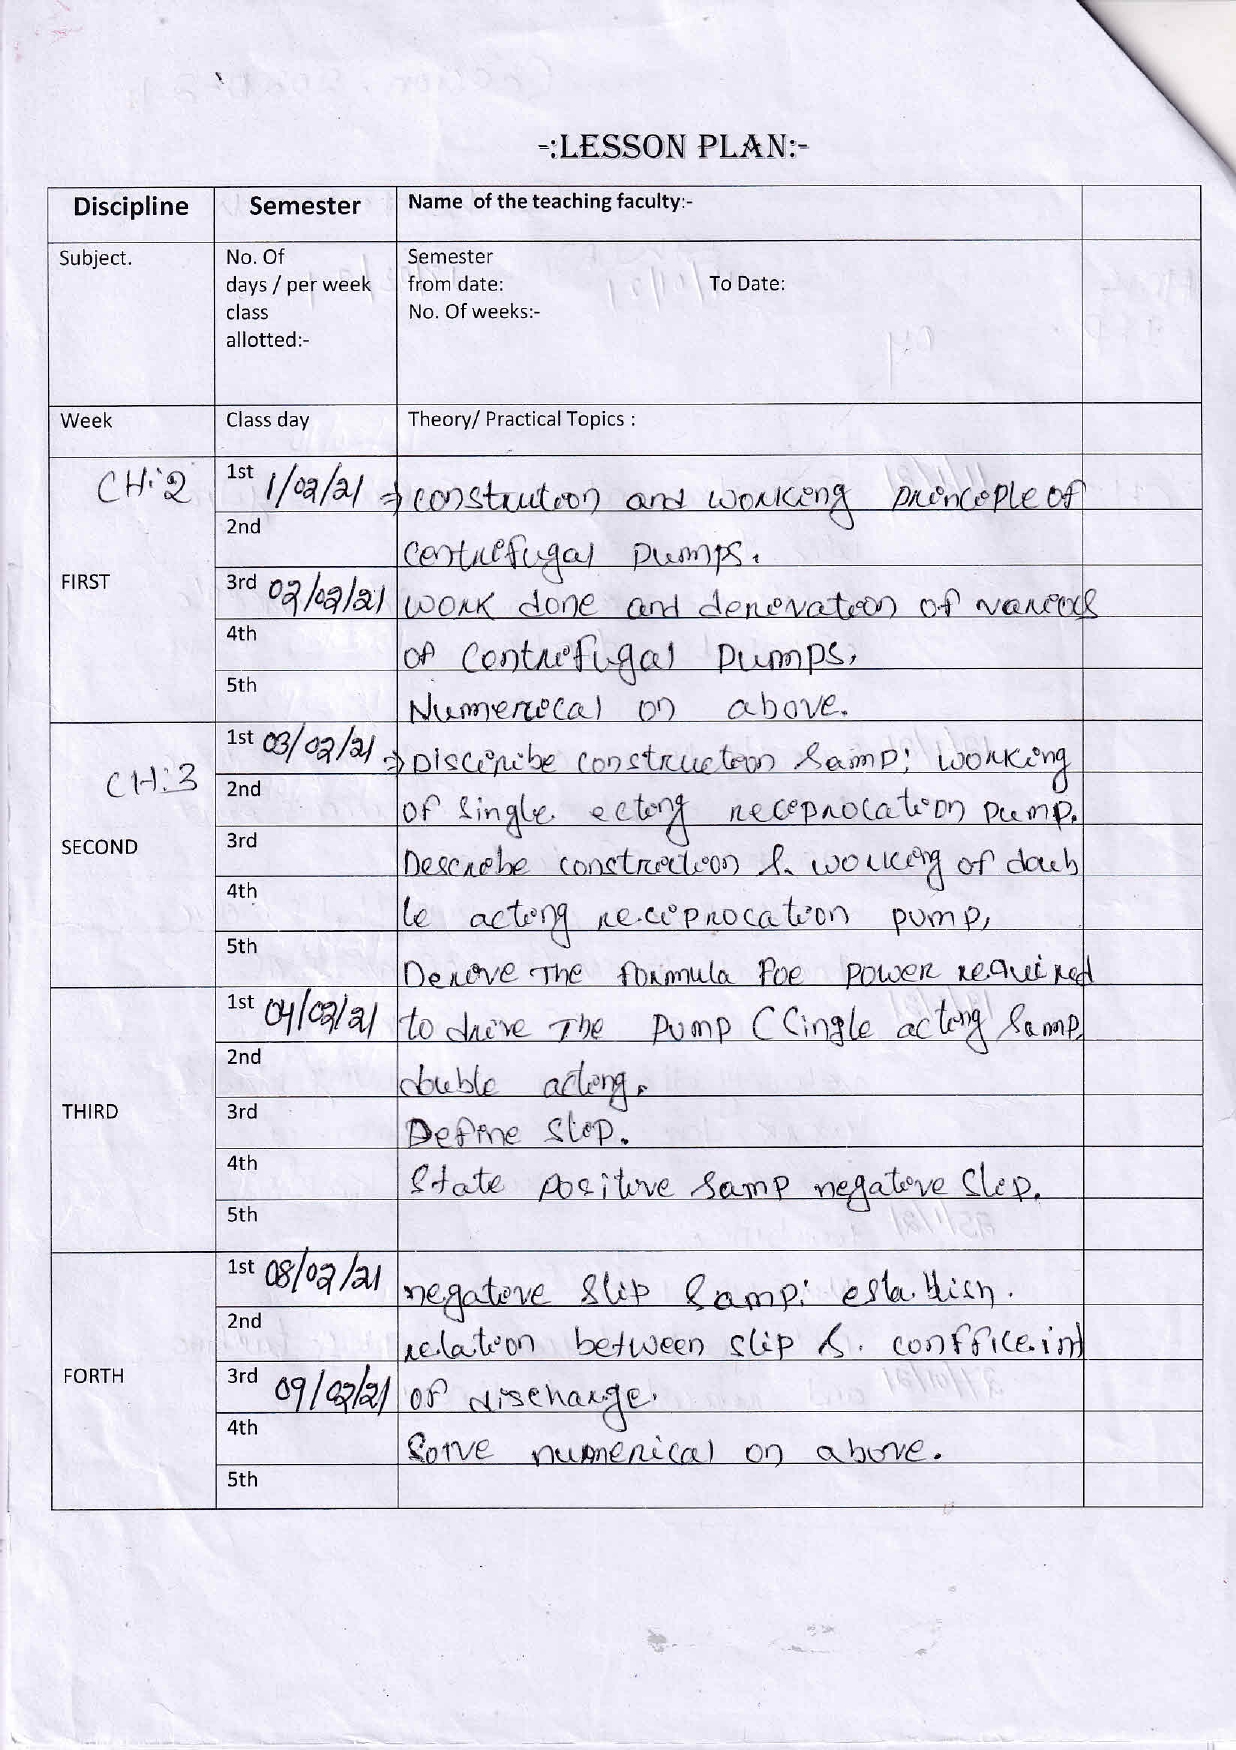 -:LESSON PLAN:-
Discipline Semester Name of the teaching faculty:-
Subject. No. Of days / per week class allotted:- Semester from date: To Date: No. Of weeks:-
Week Class day Theory/ Practical Topics :
CH:2 1st 1/02/21 → construtoon and working princople of
2nd centrifugal pumps.
FIRST 3rd 02/02/21 work done and derovatoon of
4th of Centrifugal pumps,
5th Numerocal on above.
CH:3 1st 03/02/21 → Discribe construction &amp; working
2nd of single ectong reciprocation pump.
SECOND 3rd Describe construction & working of doub
4th le actong reciprocation pump,
5th Derove The formula Foe power required
1st 04/02/21 to drive The pump (Cingle actong &amp;
2nd double actong.
THIRD 3rd Define slop.
4th State positive &amp negative slip.
5th
1st 08/02/21 negatove slip &amp; establish.
2nd relation between slip &. confficeint
FORTH 3rd 09/02/21 of discharge.
4th Solve numerical on above.
5th